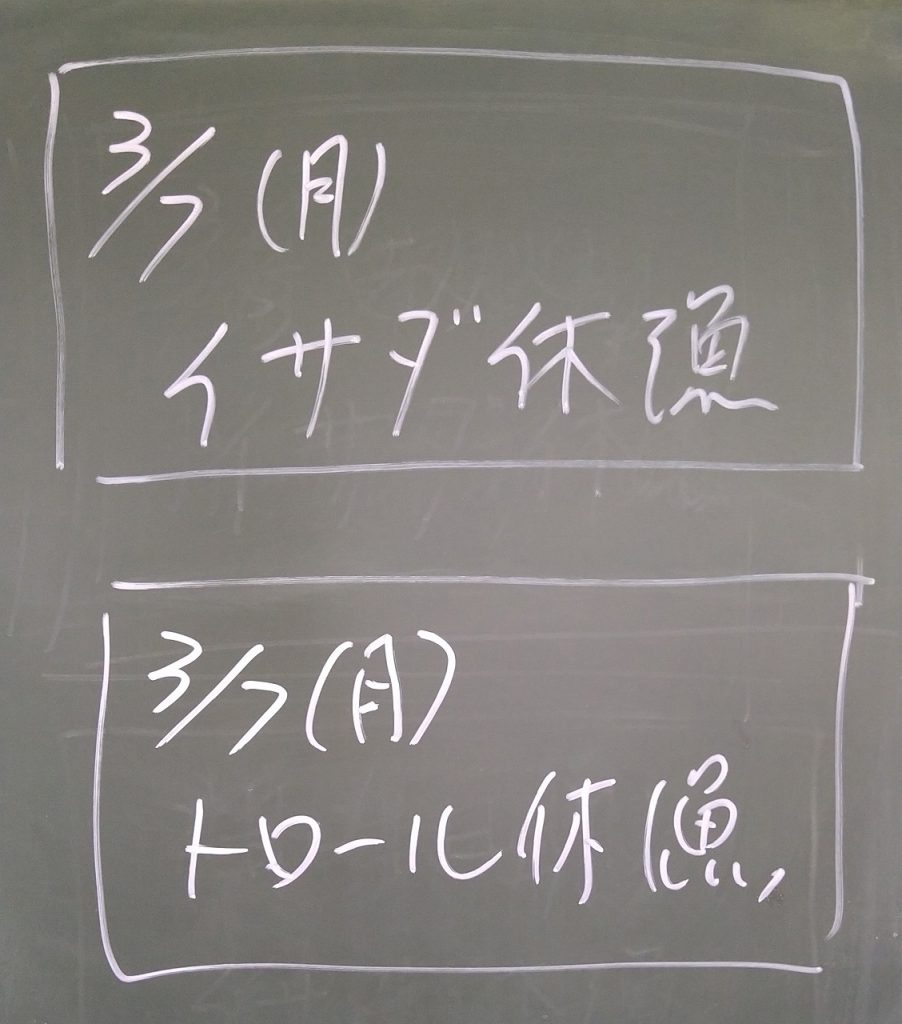 3/7(月)
イサダ休漁
3/7(月)
トロール休漁